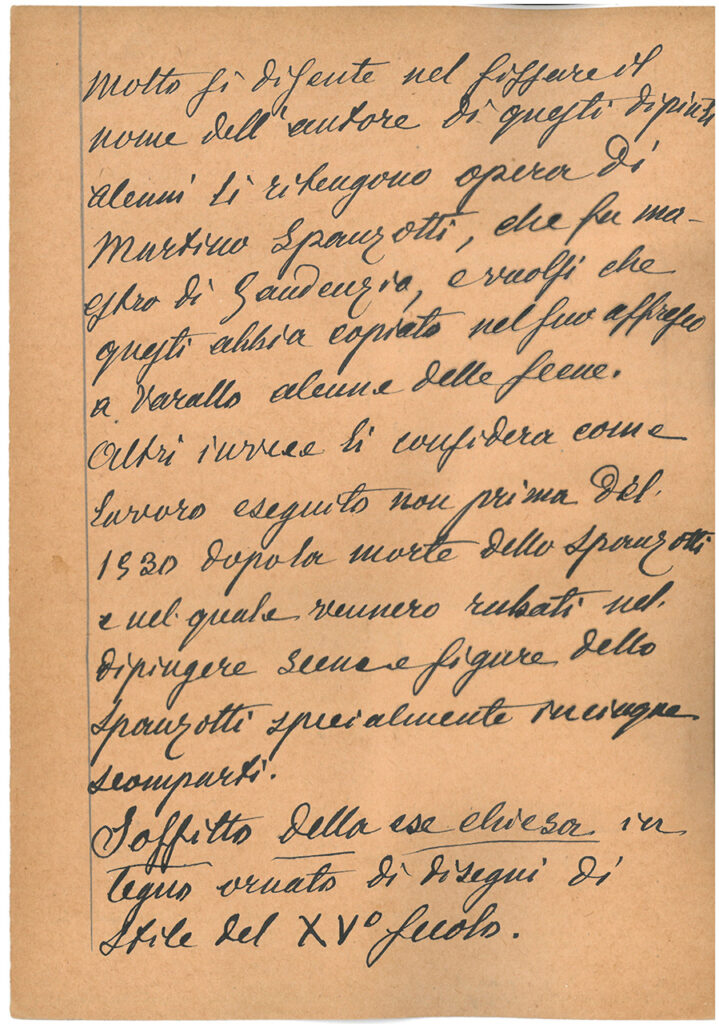 Molto si disente nel fissare il
nome dell'autore di questi dipinti
alcuni li ritengono opera di
Martino Spanzotti, che fu ma-
estro di Gaudenzio, e vuolsi che
questi abbia copiato nel suo affresco
a Varallo alcune delle scene.
Altri invece li considera come
lavoro eseguito non prima del
1530 dopo la morte dello Spanzotti
e nel quale vennero rubati nel
dipingere scene e figure dello
Spanzotti specialmente in cinque
scomparti.
Soffitto della ex chiesa in
legno ornato di disegni di
stile del XVº secolo.